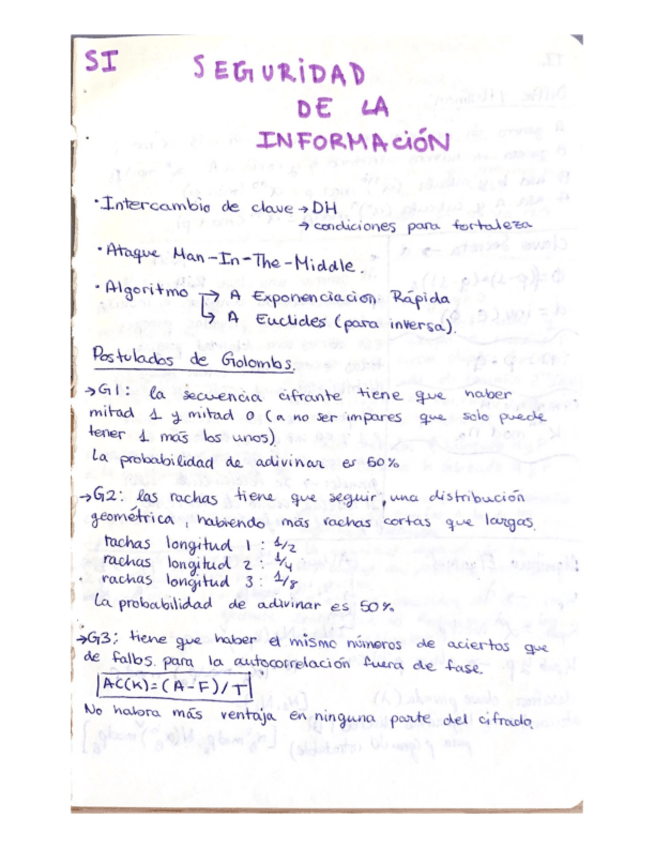 SI
SEGURIDAD
DE LA
INFORMACIÓN
· Intercambio de clave → DH
→ condiciones para fortaleza
· Ataque Man-In-The-Middle.
· Algoritmo → A Exponenciacion Rápida
↳ A Euclides (para inversa).
Postulados de Golombs.
→ G1: la secuencia cifrante tiene que haber
mitad 1 y mitad 0 (a no ser impares que solo puede
tener 1 más los unos)
La probabilidad de adivinar es 50%
→ G2: las rachas tiene que seguir una distribución
geométrica, habiendo más rachas cortas que largas.
rachas longitud 1: 1/2
rachas longitud 2: 1/4
rachas longitud 3: 1/8
La probabilidad de adivinar es 50%
→ G3: tiene que haber el mismo números de aciertos que
de fallos para la autocorrelación fuera de fase.
AC(K)=(A-F)/T
No habora más ventaja en ninguna parte del cifrado.